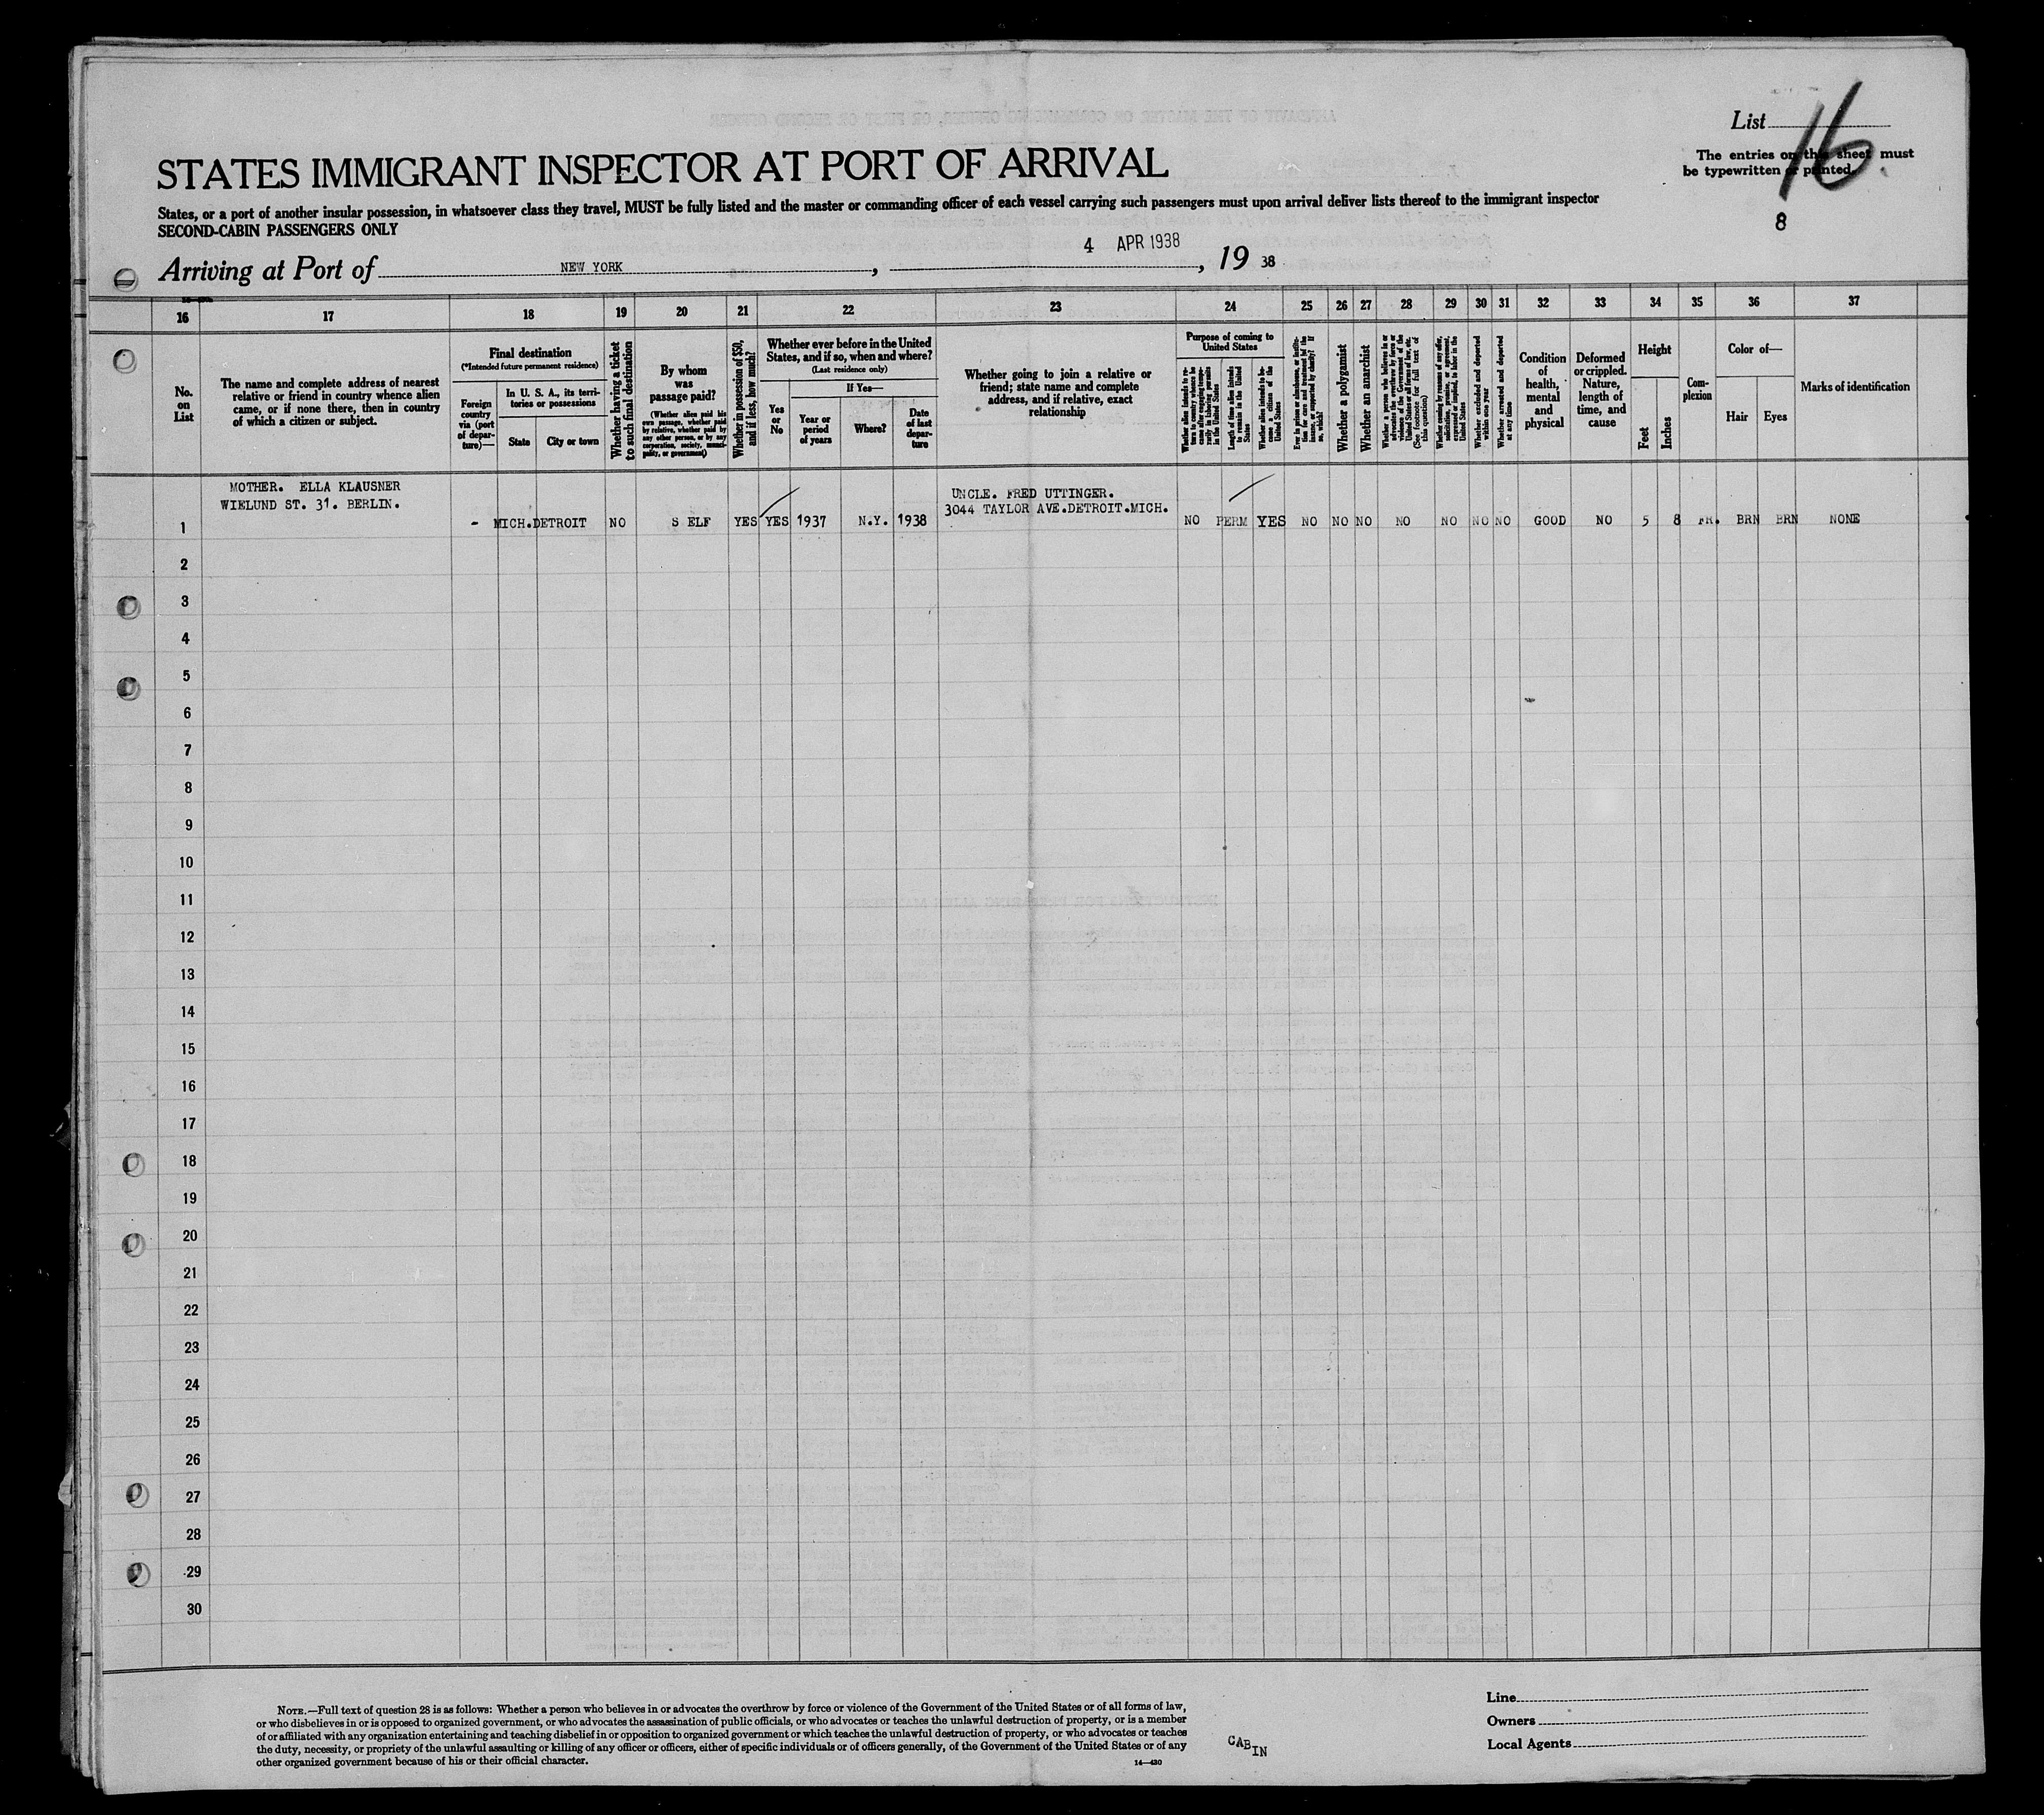 List 16
The entries on this sheet must
be typewritten or printed.
8
STATES IMMIGRANT INSPECTOR AT PORT OF ARRIVAL
States, or a port of another insular possession, in whatsoever class they travel, MUST be fully listed and the master or commanding officer of each vessel carrying such passengers must upon arrival deliver lists thereof to the immigrant inspector
SECOND-CABIN PASSENGERS ONLY
Arriving at Port of NEW YORK, 4 APR 1938, 19 38
16 17 18 19 20 21 22 23 24 25 26 27 28 29 30 31 32 33 34 35 36 37
No.
on
List
The name and complete address of nearest
relative or friend in country whence alien
came, or if none there, then in country
of which a citizen or subject.
Final destination
(*Intended future permanent residence)
Foreign
country
via (port
of depar-
ture)—
In U. S. A., its terri-
tories or possessions
State
City or town
Whether having a ticket
to such final destination
By whom
was
passage paid?
(Whether alien paid his
own passage, whether paid
by relative, whether paid by
any other person, or by any
corporation, society, munici-
pality, or government)
Whether in possession of $50,
and if less, how much?
Whether ever before in the United
States, and if so, when and where?
(Last residence only)
Yes
or
No
If Yes—
Year or
period
of years
Where?
Date
of last
depar-
ture
Whether going to join a relative or
friend; state name and complete
address, and if relative, exact
relationship
Purpose of coming to
United States
Whether alien intends to re-
turn to country whence he
came after engaging tempo-
rarily in laboring pursuits
in the United States
Length of time alien intends
to remain in the United
States
Whether alien intends to be-
come a citizen of the
United States
Ever in prison or almshouse, or institu-
tion for care and treatment of the
insane, or supported by charity? If
so, which?
Whether a polygamist
Whether an anarchist
Whether a person who believes in or
advocates the overthrow by force or
violence of the Government of the
United States or all forms of law, etc.
(See footnote for full text of
this question)
Whether coming by reason of any offer,
solicitation, promise, or agreement,
expressed or implied, to labor in the
United States
Whether excluded and deported
within one year
Whether arrested and deported
at any time
Condition
of
health,
mental
and
physical
Deformed
or crippled.
Nature,
length of
time, and
cause
Height
Feet
Inches
Com-
plexion
Color of—
Hair Eyes
Marks of identification
MOTHER. ELLA KLAUSNER
WIELUND ST. 31. BERLIN.
UNCLE. FRED UTTINGER.
3044 TAYLOR AVE.DETROIT.MICH.
1 - MICH.DETROIT NO S ELF YES YES 1937 N.Y. 1938 NO PERM YES NO NO NO NO NO NO NO GOOD NO 5 8 FR. BRN BRN NONE
2
3
4
5
6
7
8
9
10
11
12
13
14
15
16
17
18
19
20
21
22
23
24
25
26
27
28
29
30
NOTE.—Full text of question 28 is as follows: Whether a person who believes in or advocates the overthrow by force or violence of the Government of the United States or of all forms of law,
or who disbelieves in or is opposed to organized government, or who advocates the assassination of public officials, or who advocates or teaches the unlawful destruction of property, or is a member
of or affiliated with any organization entertaining and teaching disbelief in or opposition to organized government or which teaches the unlawful destruction of property, or who advocates or teaches
the duty, necessity, or propriety of the unlawful assaulting or killing of any officer or officers, either of specific individuals or of officers generally, of the Government of the United States or of any
other organized government because of his or their official character.
14—430
CABIN
Line
Owners
Local Agents